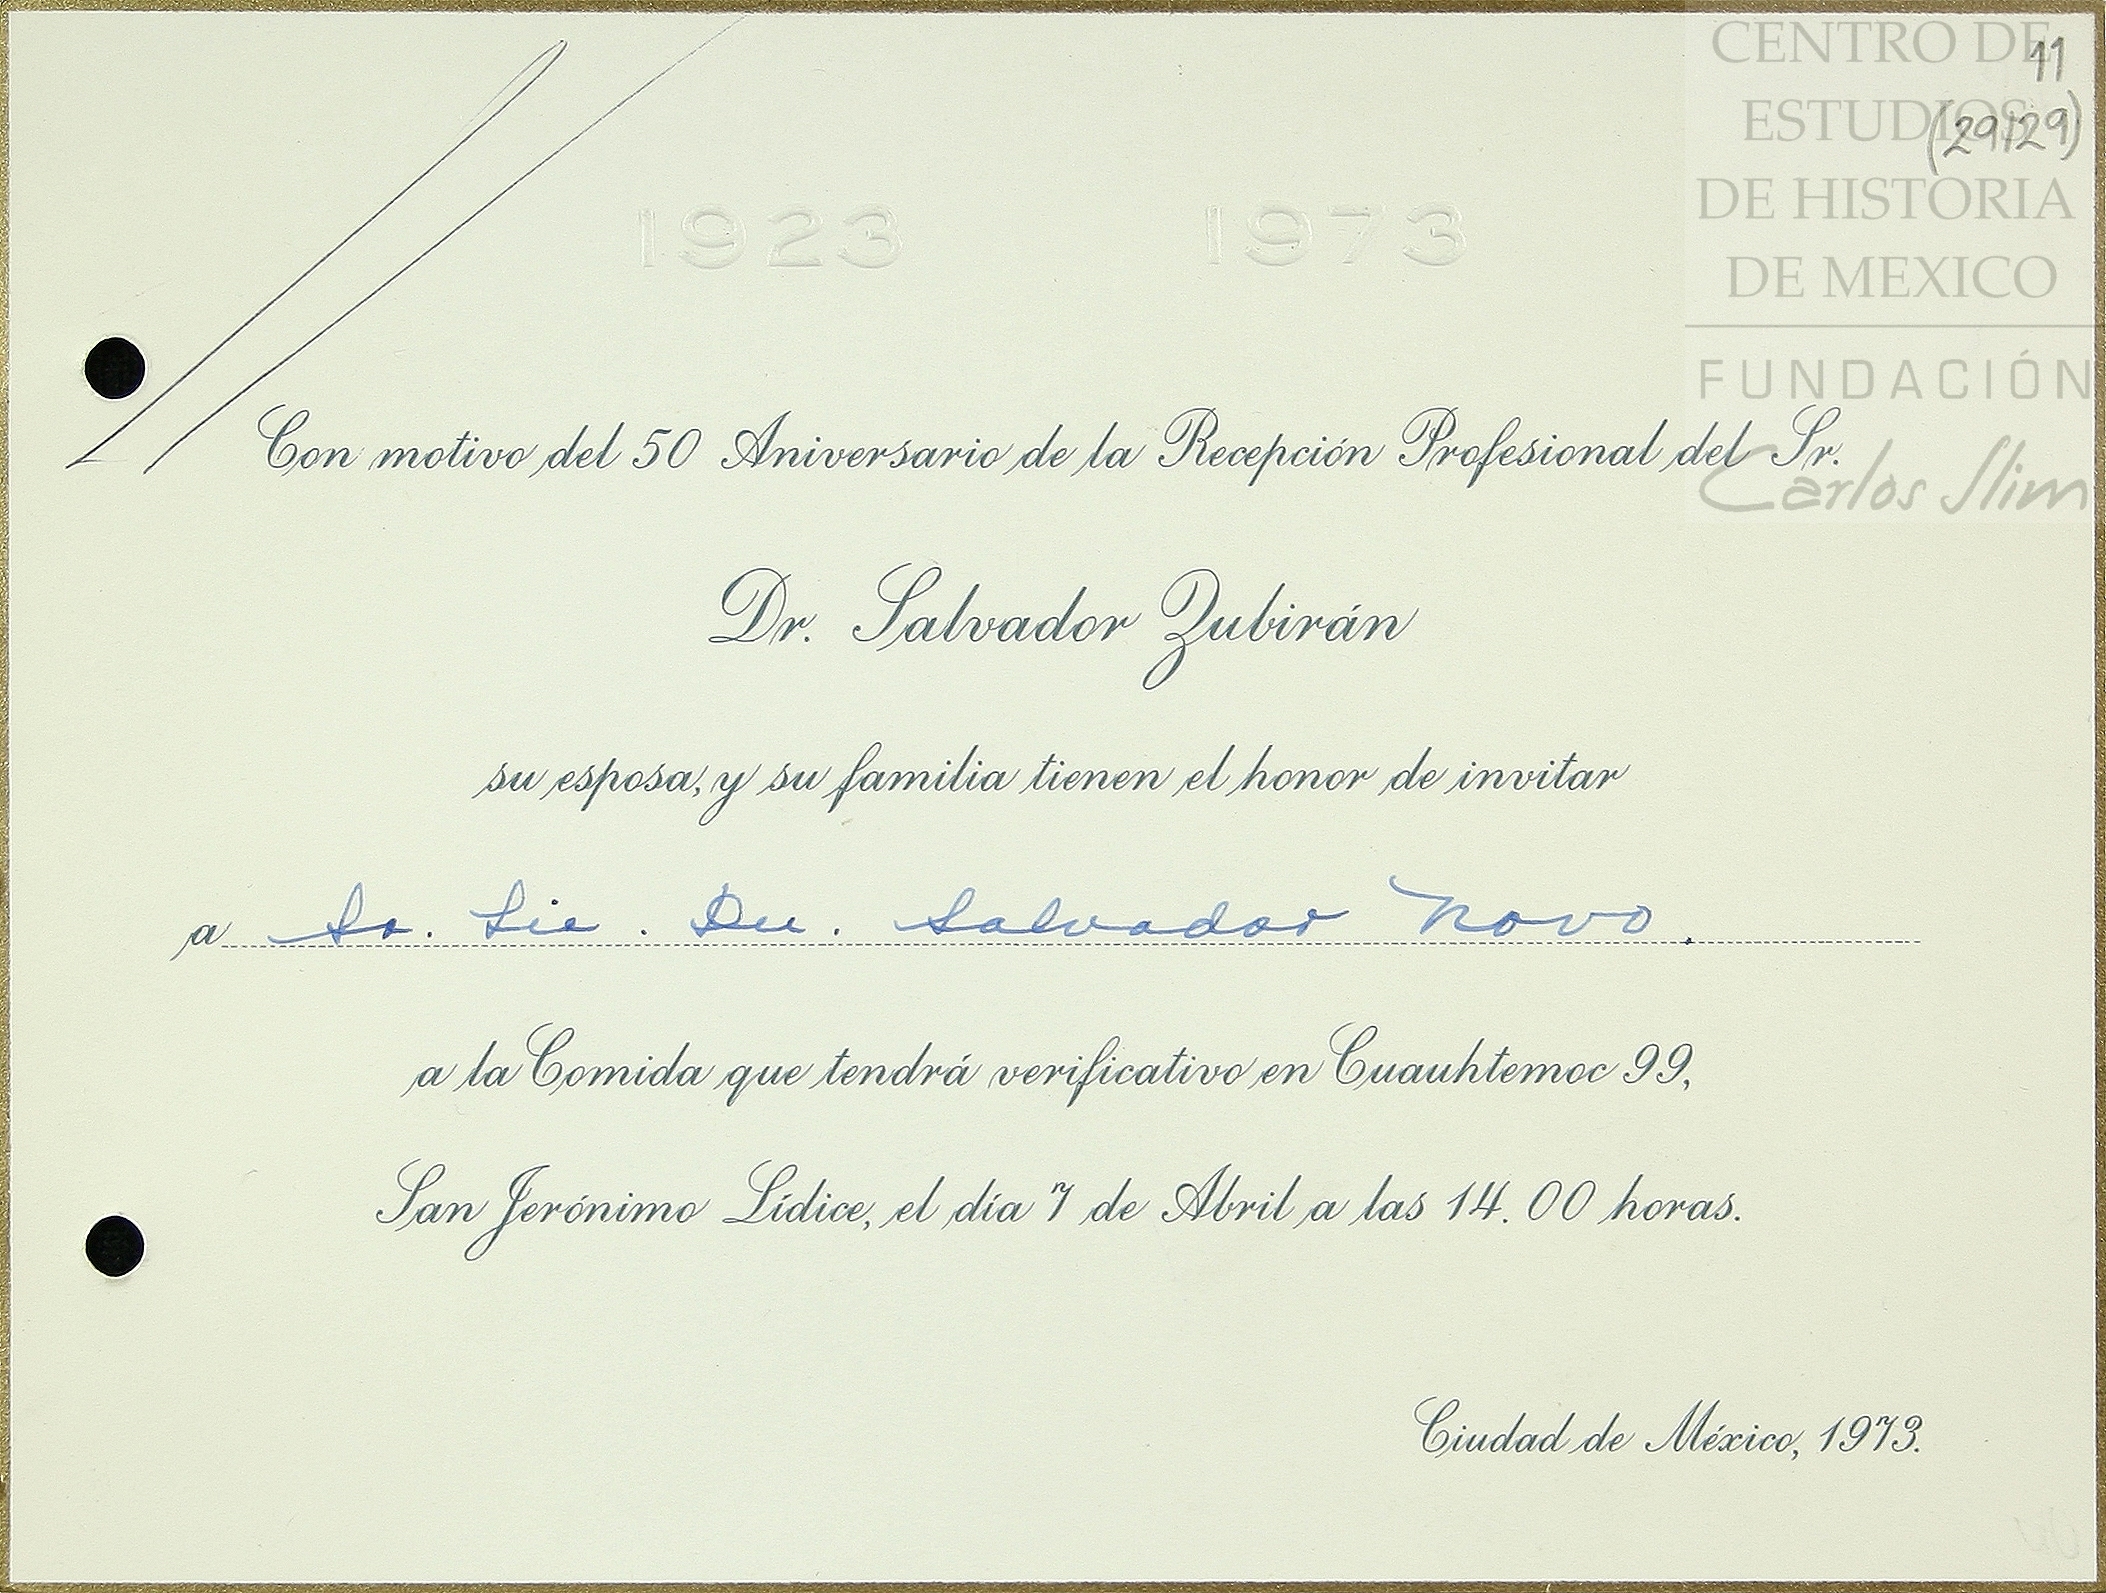 CENTRO DE
ESTUDIOS
DE HISTORIA
DE MEXICO
FUNDACIÓN
Carlos Slim
11
(29/29)
1923 1973
Con motivo del 50 Aniversario de la Recepción Profesional del Sr.
Dr. Salvador Zubirán
su esposa, y su familia tienen el honor de invitar
a Sr. Lic. Dn. Salvador Novo.
a la Comida que tendrá verificativo en Cuauhtemoc 99,
San Jerónimo Lídice, el día 7 de Abril a las 14.00 horas.
Ciudad de México, 1973.